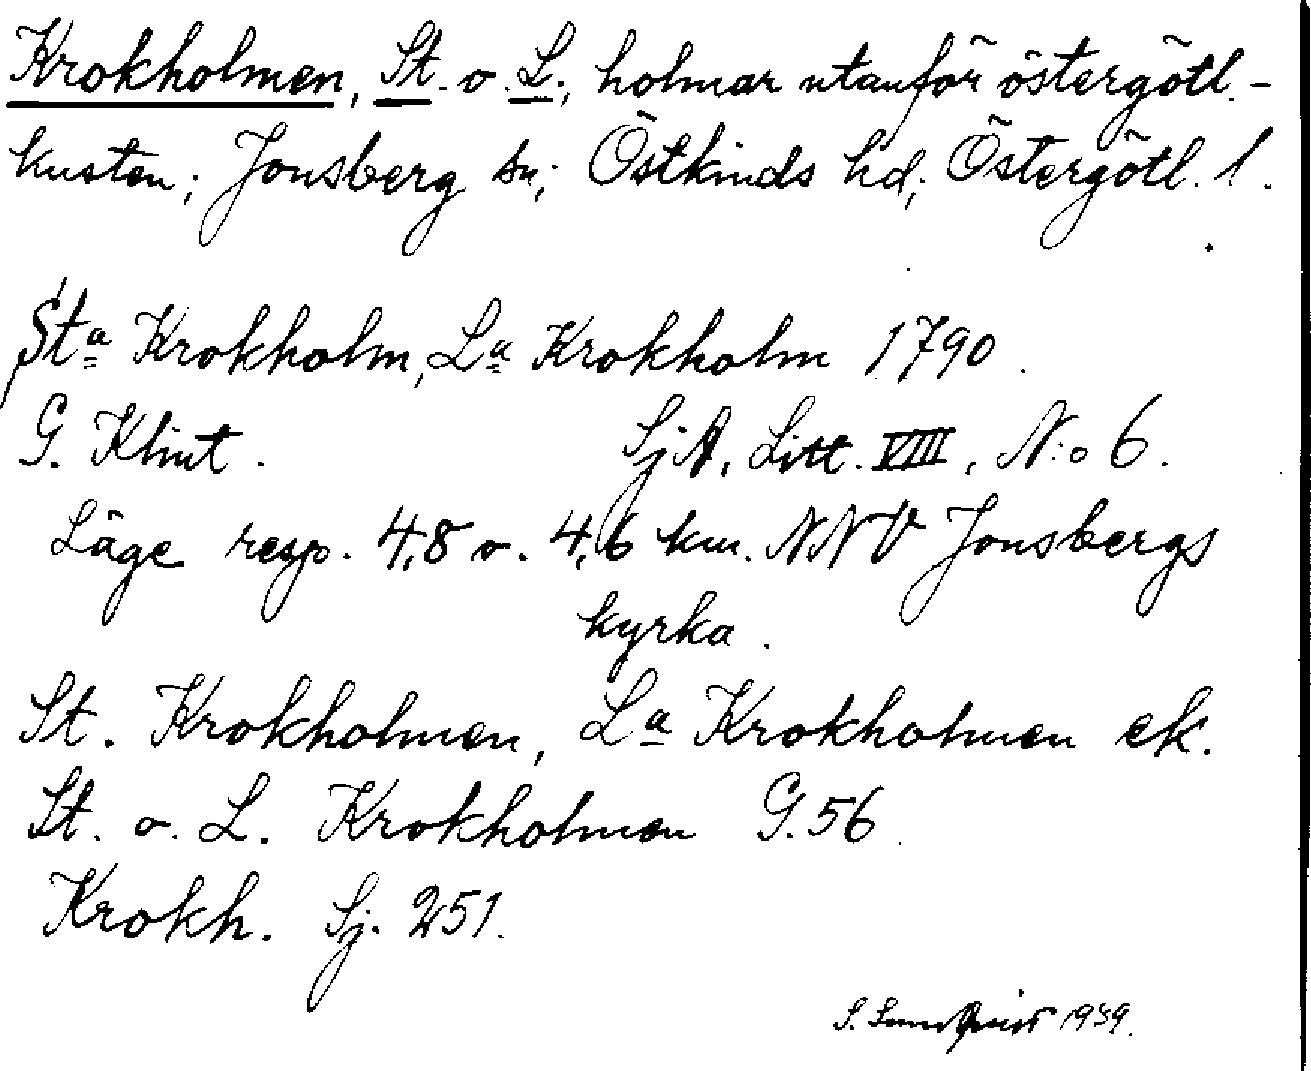 Krokholmen, St. o. L.; holmar utanför östergötl.-
kusten; Jonsberg sn; Östkinds hd; Östergötl. l.
Sta Krokholm, La Krokholm 1790.
G. Klint. SjA, Litt. VIII, N:o 6.
Läge resp. 4,8 o. 4,6 km. NNV Jonsbergs
kyrka.
St. Krokholmen, La Krokholmen ek.
St. o. L. Krokholmen G. 56.
Krokh. Sj. 251.
S. Sundquist 1939.